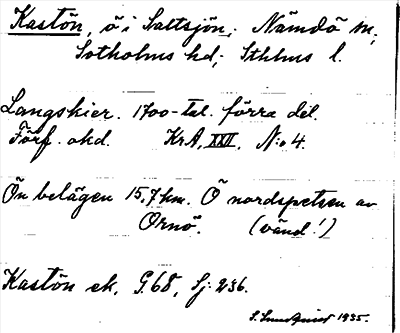 Kastön, ö i Saltsjön; Nämdö sn;
Sotholms hd; Sthlms l.
Langskier. 1700-tal. förra del.
Förf. okd. KrA, XXII, N:o 4.
Ön belägen 15,7 km. O nordspetsen av
Ornö. (vänd!)
Kastön ek. G.68, Sj: 236.
S. Lundquist 1935.